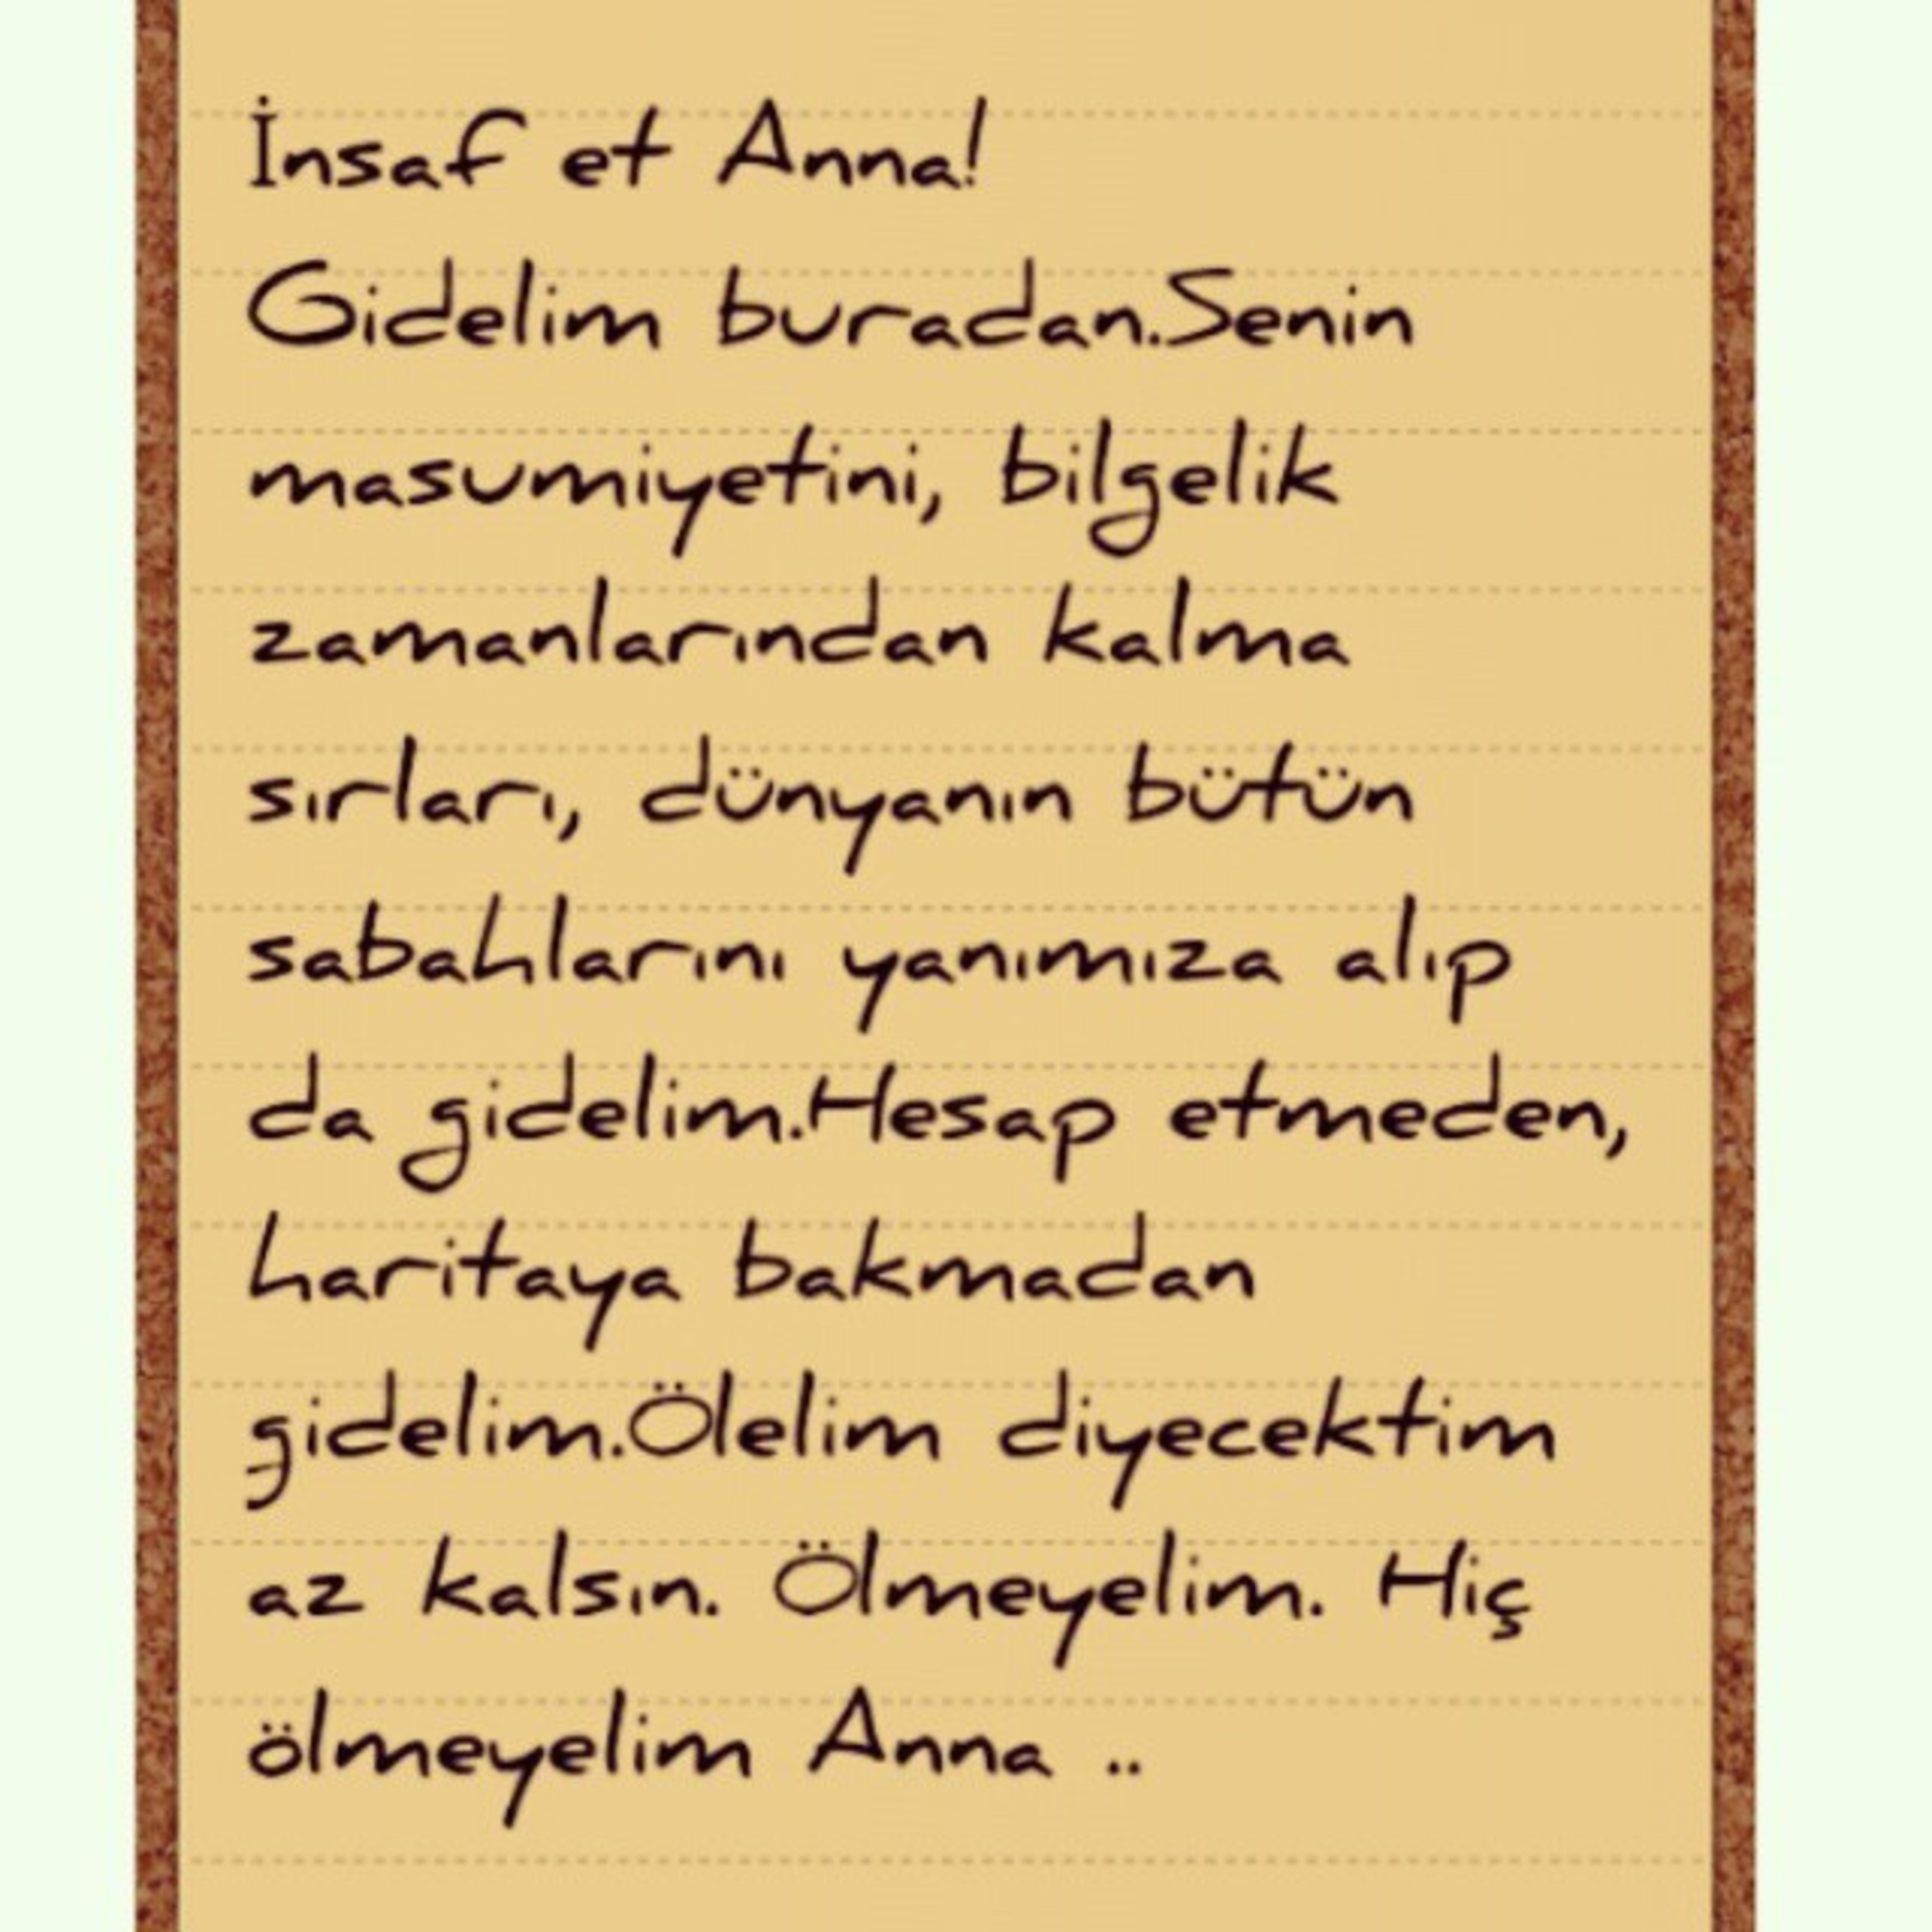 İnsaf et Anna!
Gidelim buradan.Senin
masumiyetini, bilgelik
zamanlarından kalma
sırları, dünyanın bütün
sabahlarını yanımıza alıp
da gidelim.Hesap etmeden,
haritaya bakmadan
gidelim.Ölelim diyecektim
az kalsın. Ölmeyelim. Hiç
ölmeyelim Anna ..